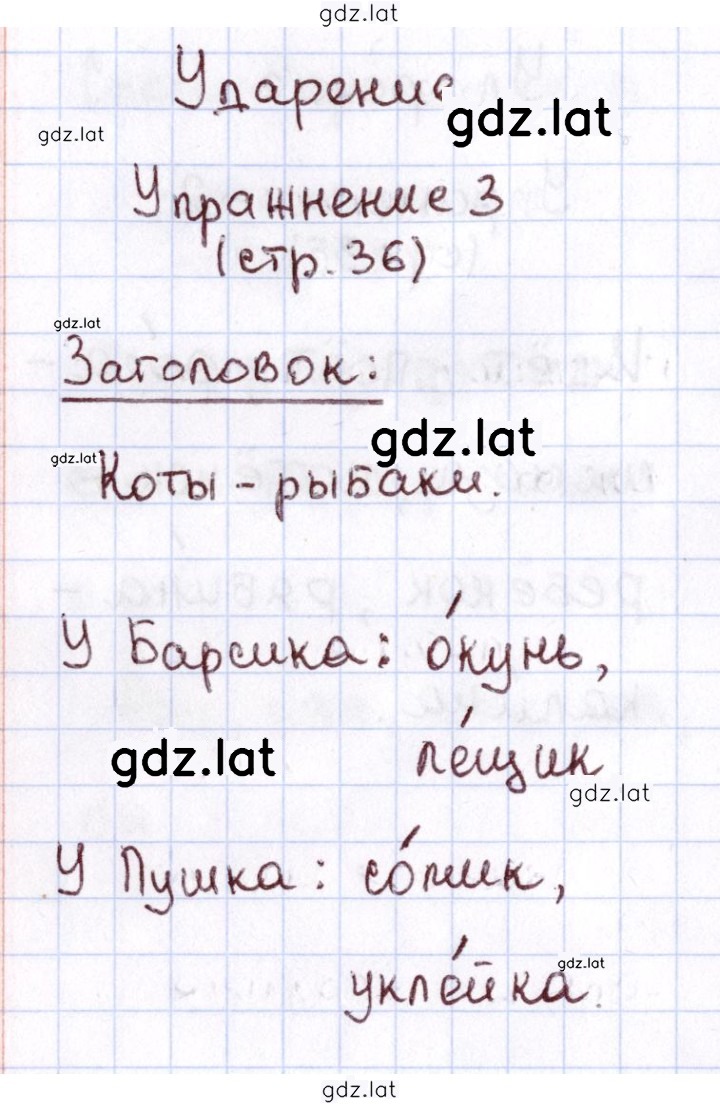 gdz.lat
Ударение
gdz.lat
gdz.lat
Упражнение 3
(стр. 36)
gdz.lat
Заголовок:
gdz.lat
gdz.lat
Коты - рыбаки.
У Барсика: о́кунь,
gdz.lat
ле́щик
gdz.lat
У Пушка: со́мик,
gdz.lat
укле́йка.
gdz.lat